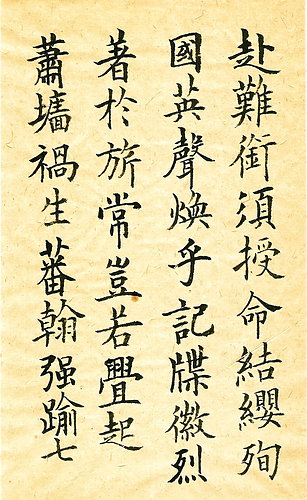 赴難銜須授命結纓殉
國英聲煥乎記牒徽烈
著於旅常豈若疊起
蕭墻禍生蕃翰强踰七